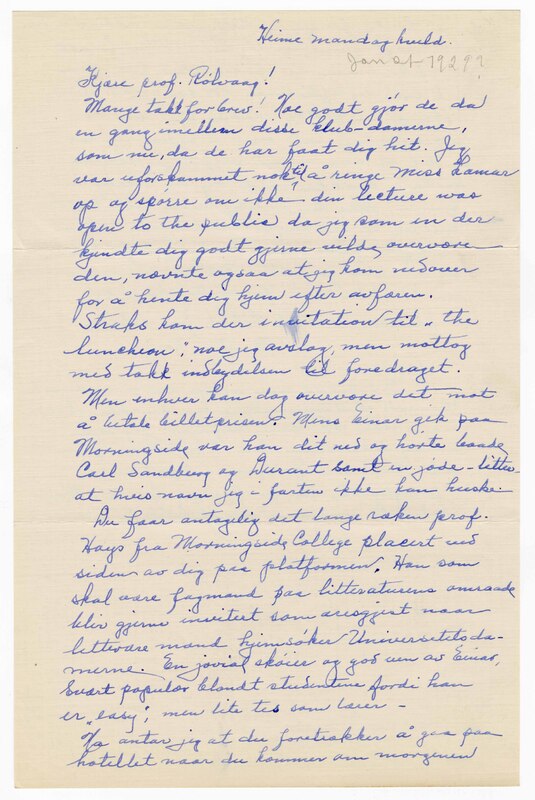 Heime mandag kveld.
Jan or 1929??
Kjære prof. Rölvaag!
Mange takk for brev! Noe godt gjör de da
en gang imellem disse klub-damerne,
som nu, da de har faat dig hit. Jeg
var uforskammet nok til å ringe Miss Lamar
op og spörre om ikke din lecture was
open to the public da jeg som en der
kjendte dig godt gjerne vilde overvære
den, nævnte ogsaa at jeg kom nedover
for å hente dig hjem efter avfæren.
Straks kom der invitation til "the
luncheon", noe jeg avslog, men mottog
med takk indbydelsen til foredraget.
Men enhver kan dog overvære det mot
å betale billetprisen. Mens Einar gik paa
Morningside var han dit ned og hörte baade
Carl Sandburg og Durant samt en jöde-litter-
at hvis navn jeg i farten ikke kan huske.
Du faar antagelig det lange raken prof.
Hays fra Morningside College placert ved
siden av dig paa platformen. Han som
skal være fagmand paa litteraturens omraade
blir gjerne invitert som æresgjest naar
litterære mænd hjemsöker Universitetsda-
merne. En jovial sköier og god ven av Einar,
svært populær blandt studentene fordi han
er "easy", men lite tes som lærer –
Nu antar jeg at du foretrækker å gaa paa
hotellet naar du kommer om morgenen